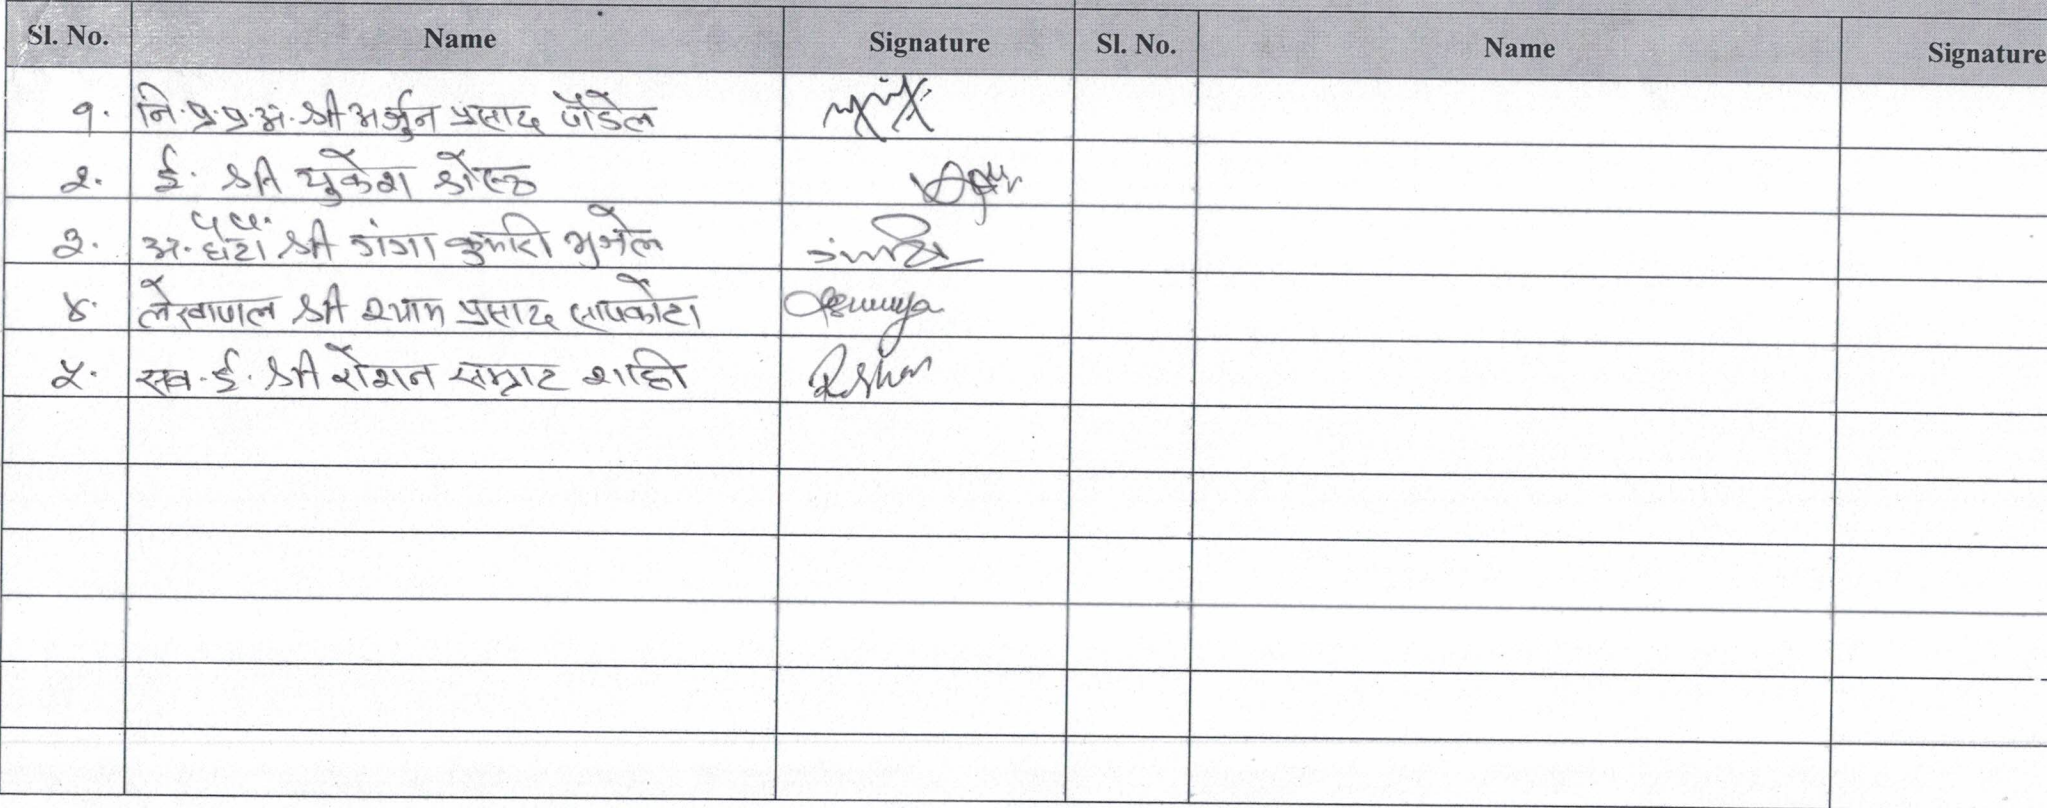 Sl. No. Name Signature Sl. No. Name Signature
१. नि.प्र.प्र.अ. श्री अर्जुन प्रसाद पौडेल
२. ई. श्री युकेश श्रेष्ठ
३. अ. श्री गंगा कुमारी भुजेल
४. लेखापाल श्री श्याम प्रसाद सापकोटा
५. सव.ई. श्री रोशन सम्राट शाही Roshan